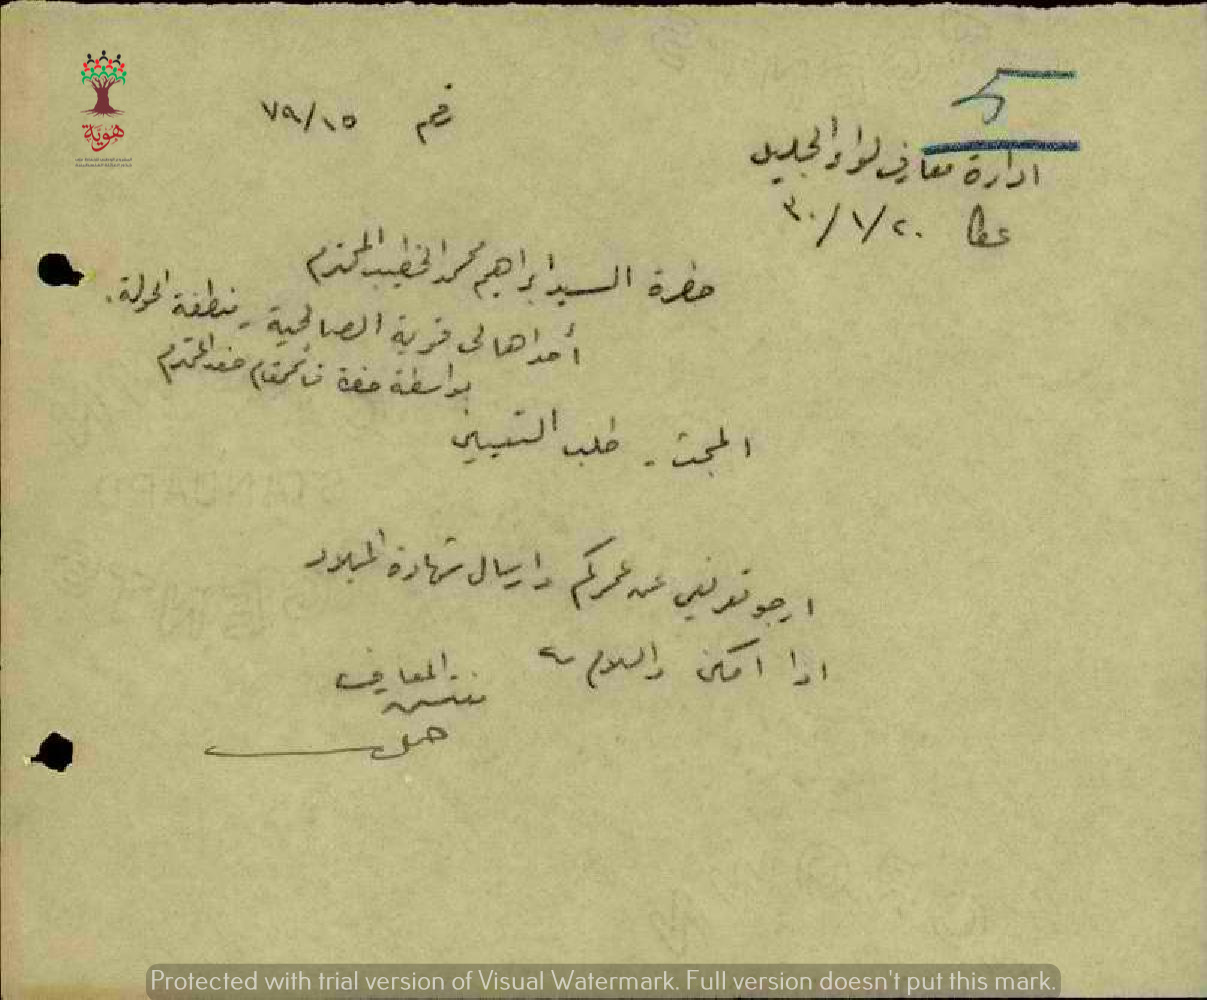 5
رقم ٧٩/١٥
ادارة معارف لواء الجليل
عكا ٣٠/١/٢٠
حضرة السيد ابراهيم محمد الخطيب المحترم
أحد اهالي قرية الصالحية - منطقة الحولة.
بواسطة حضرة قائمقام صفد المحترم
المبحث - طلب التعيين
ارجو تعريفي عن عمركم وارسال شهادة الميلاد
اذا امكن والسلام
مفتش المعارف
هوية
Protected with trial version of Visual Watermark. Full version doesn't put this mark.